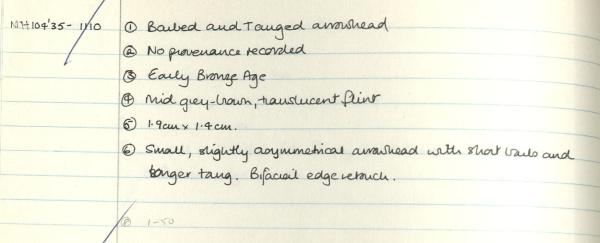 NH104'35- 1/10 ① Barbed and Tanged arrowhead
② No provenance recorded
③ Early Bronze Age
④ Mid grey-brown, translucent flint
⑤ 1.9cm x 1.4cm.
⑥ Small, slightly asymmetrical arrowhead with short barbs and
longer tang. Bifacial edge retouch.
⑧ 1-50